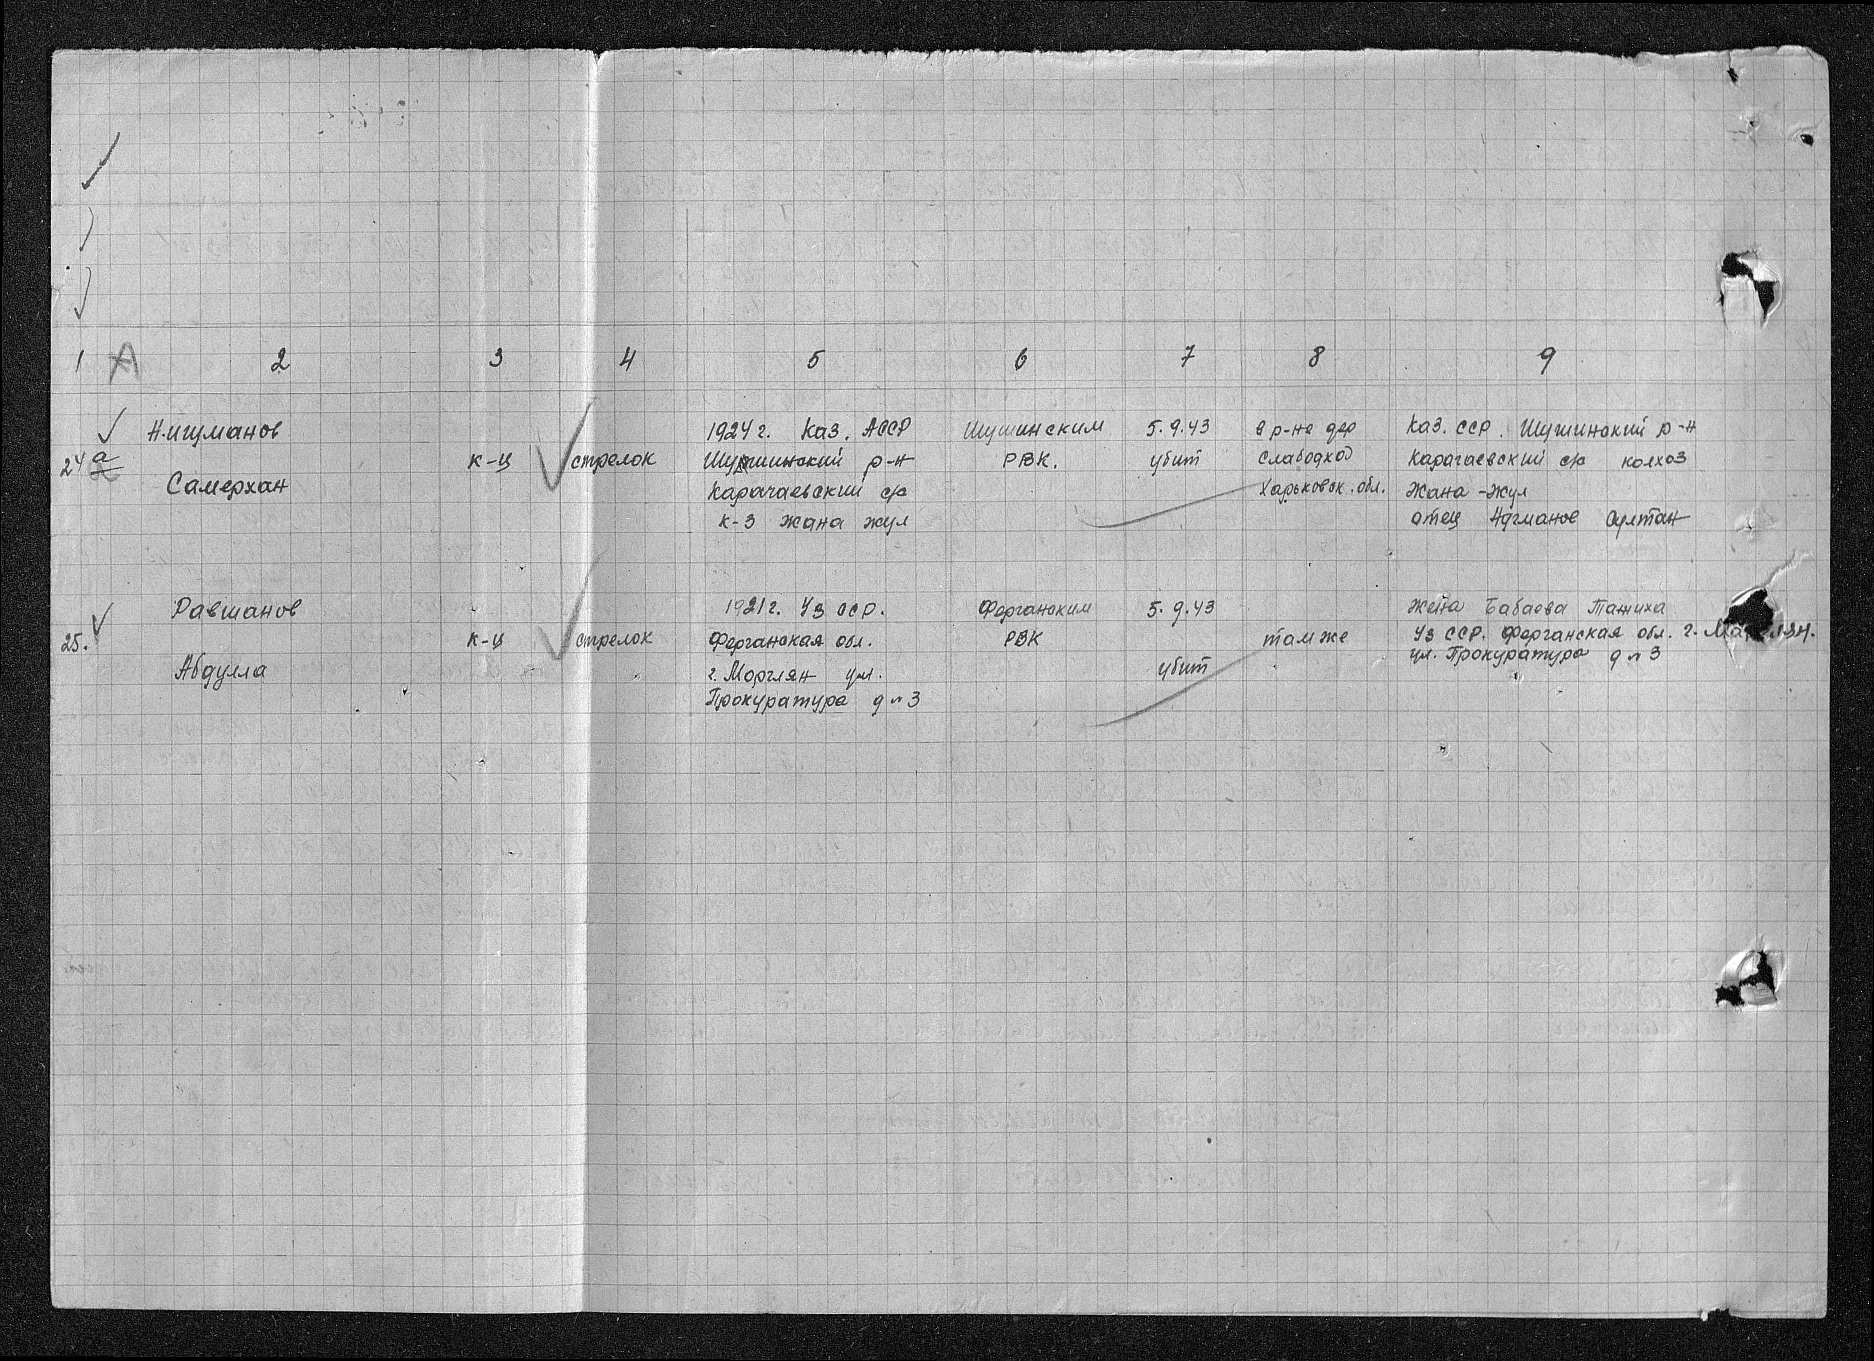 1 А 2 3 4 5 6 7 8 9
Нигуманов 1924 г. Каз. АССР Шушинским 5.9.43 в р-не дер Каз. ССР. Шушинский р-н
24 а к-ц стрелок Шушинский р-н РВК. убит Слабодхоз Карагаевский с/с колхоз
Самерхан Карачаевский с/с Харьковск. обл. Жана-жул
к-з жана жул отец Нугманов Султан
Равшанов 1921 г. Уз ССР. Ферганским 5.9.43 жена Бабаева Тажиха
25. к-ц стрелок Ферганская обл. РВК там же Уз ССР. Ферганская обл. г.
Абдулла г. Моргля́н ул. убит ул. Прокуратура д № 3
Прокуратура д № 3